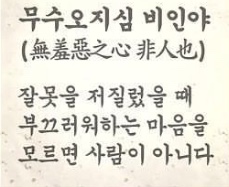 무수오지심 비인야
(無羞惡之心 非人也)
잘못을 저질렀을 때
부끄러워하는 마음을
모르면 사람이 아니다